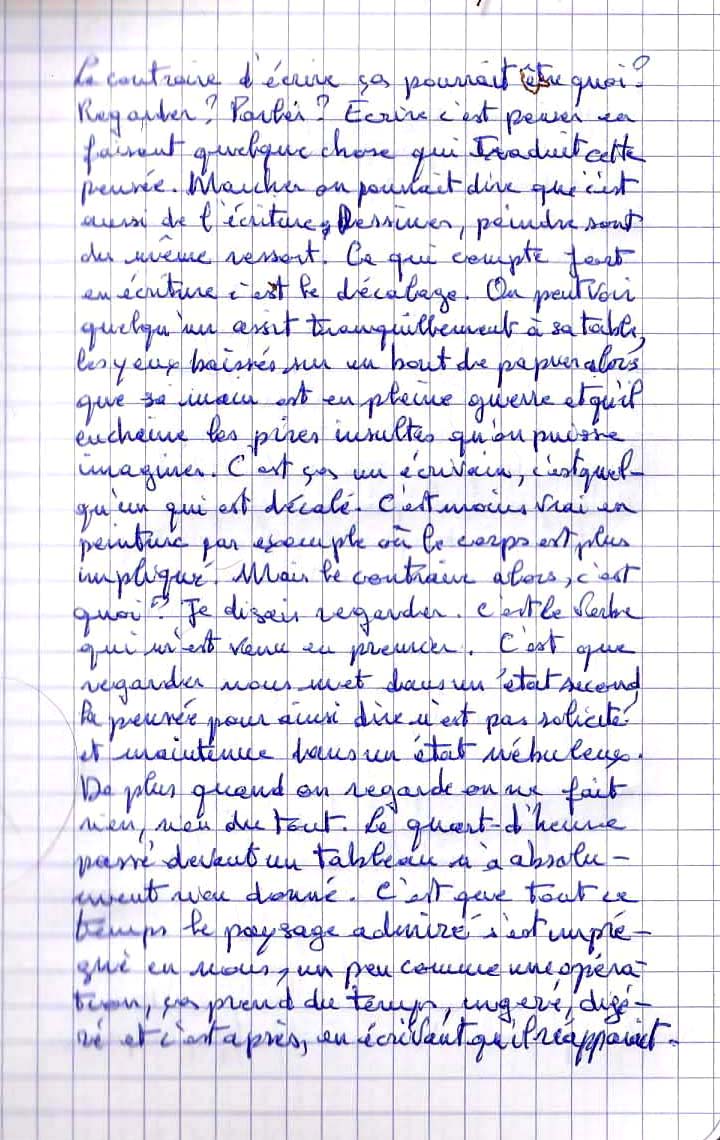 Le contraire d'écrire ça pourrait être quoi?
Regarder? Parler? Ecrire c'est penser en
faisant quelque chose qui traduit cette
pensée. Marcher on pourrait dire que c'est
aussi de l'écriture, Dessiner, peindre sont
du même ressort. Ce qui compte fort
en écriture c'est le décalage. On peut voir
quelqu'un assit tranquillement à sa table,
les yeux baissés sur un bout de papier alors
que sa main est en pleine guerre et qu'il
enchaine les pires insultes qu'on puisse
imaginer. C'est ça un écrivain, c'est quel-
qu'un qui est décalé. C'est moins vrai en
peinture par exemple où le corps est plus
impliqué. Mais le contraire alors, c'est
quoi? Je disais regarder. c'est le verbe
qui m'est venu en premier. C'est que
regarder nous met dans un état second,
la pensée pour ainsi dire n'est pas solicité
et maintenue dans un état nébuleux.
De plus quand on regarde on ne fait
rien, rien du tout. Le quart-d'heure
passé devant un tableau n'a absolu-
ment rien donné. C'est que tout ce
temps le paysage admiré s'est impré-
gné en nous, un peu comme une opéra-
tion, ça prend du temps, ingéré, digé-
ré et c'est après, en écrivant qu'il réapparait.